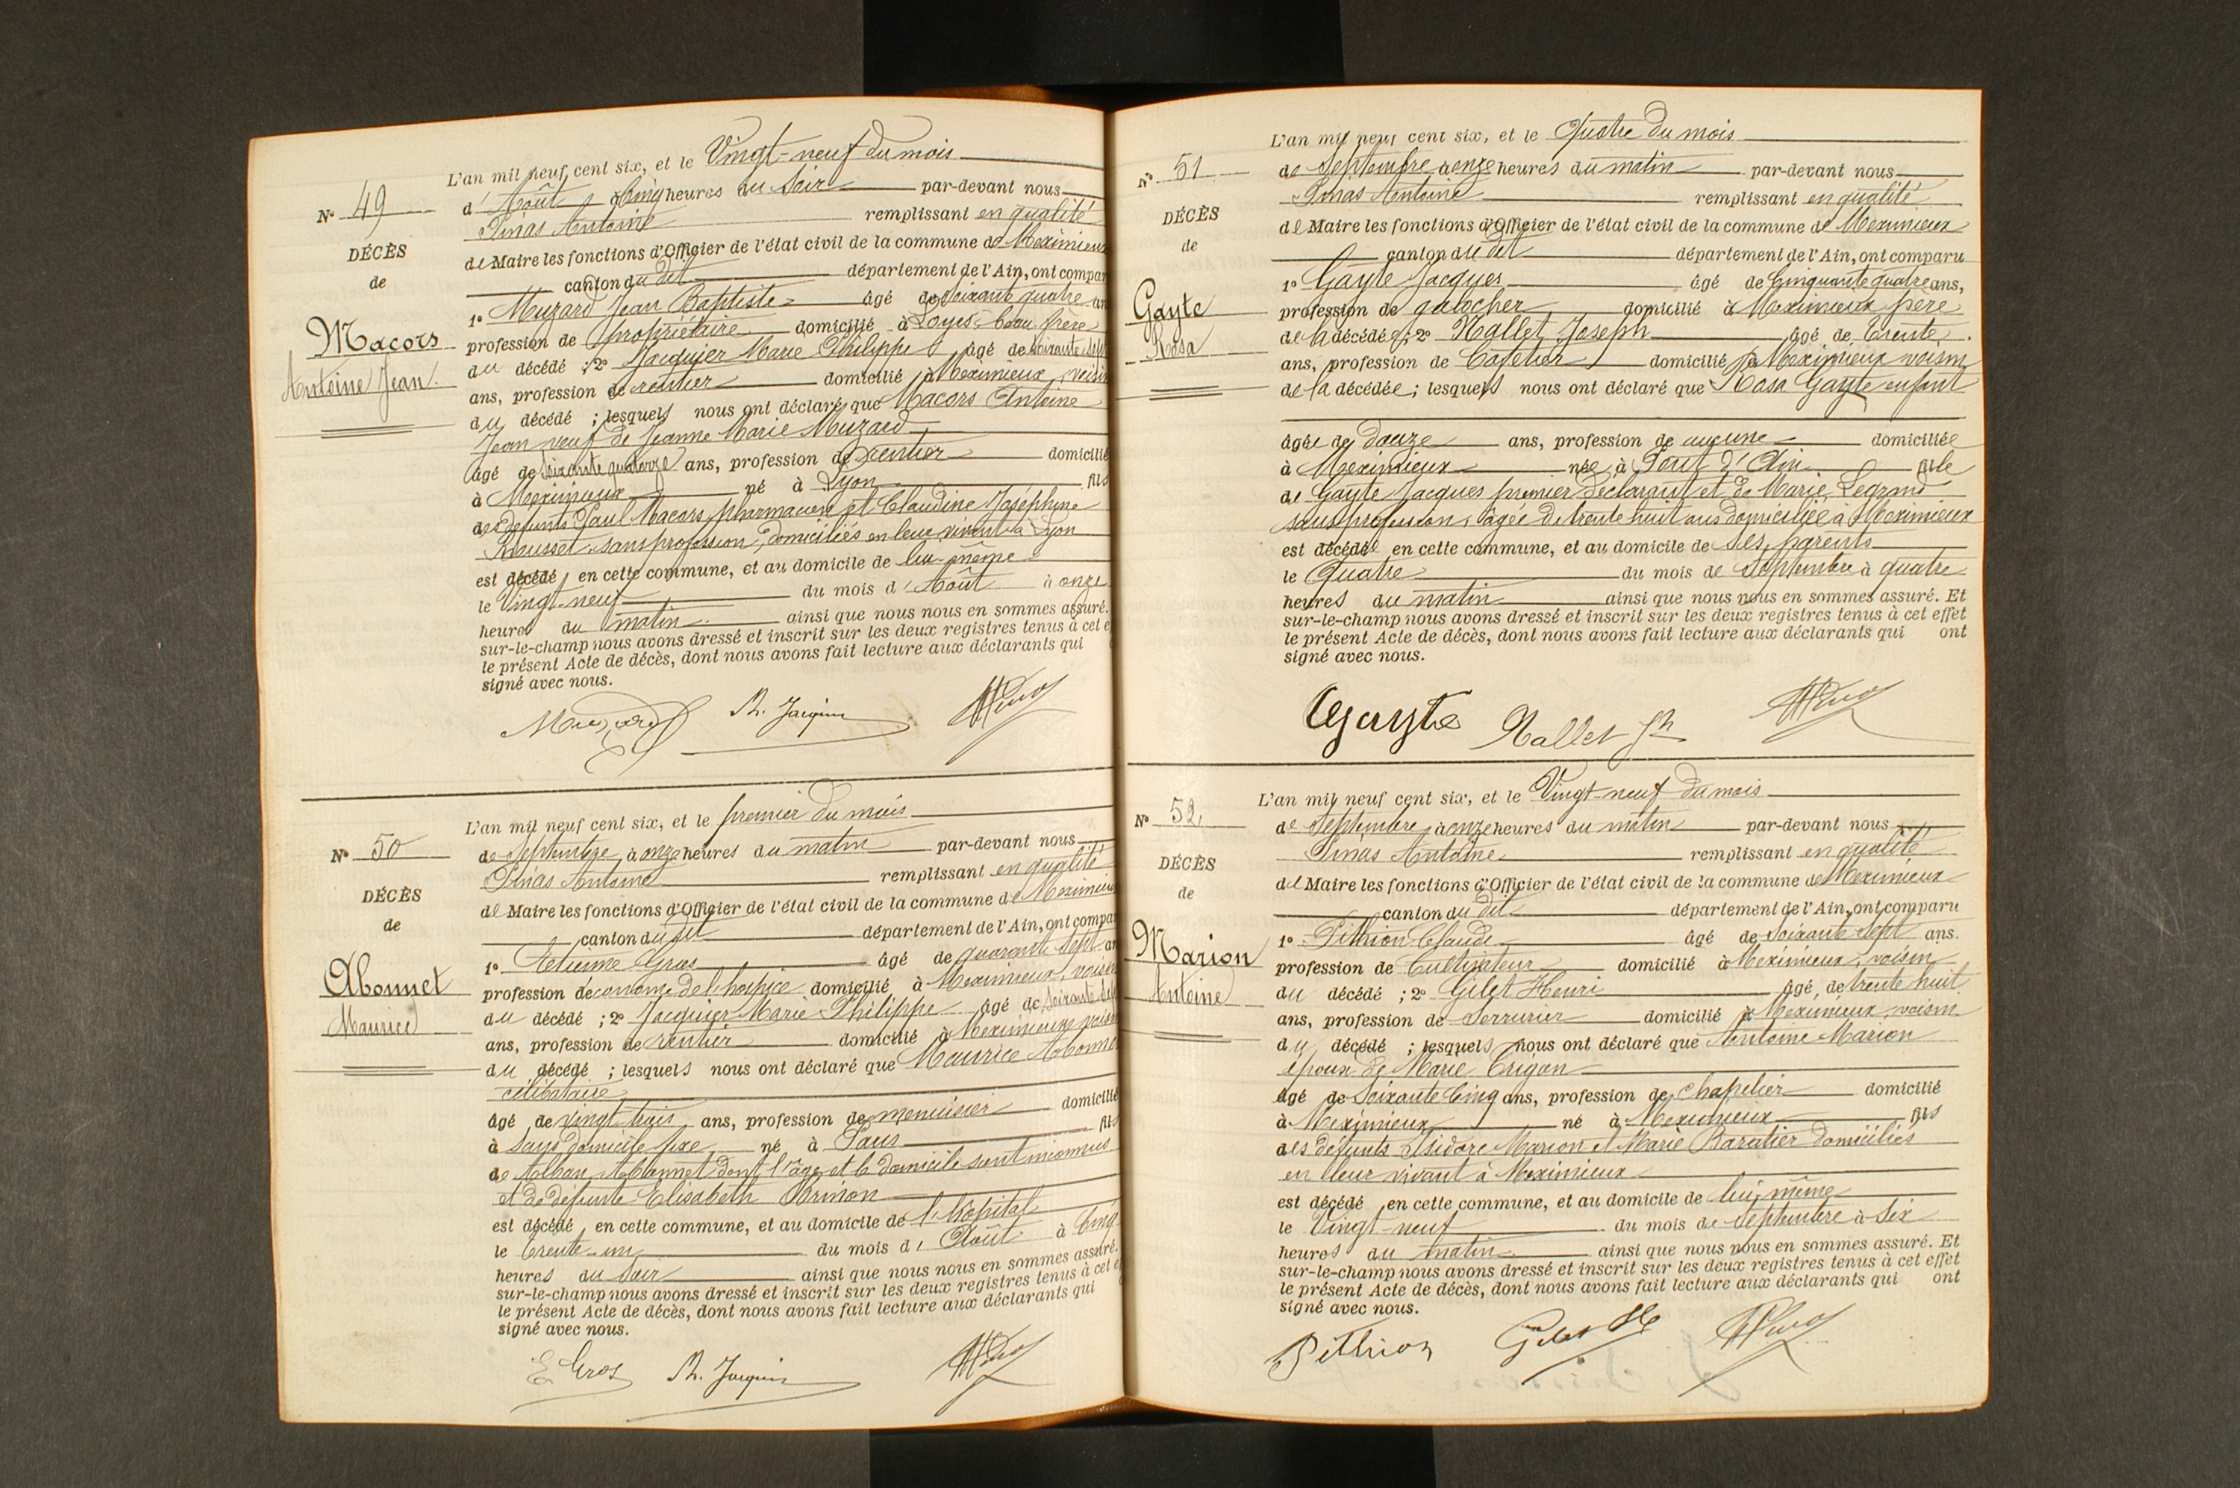 L'an mil neuf cent six, et le Vingt-neuf du mois
N° 49
d'Août à Cinq heures du Soir par-devant nous
Pinas Antoine remplissant en qualité
DÉCÈS
de Maire les fonctions d'Officier de l'état civil de la commune de Meximieux
de
canton du dit département de l'Ain, ont compar
1° Muzard Jean Baptiste âgé de Soixante quatre an
Macors
Antoine Jean
profession de propriétaire domicilié à Loyes, beau frère
du décédé ; 2° Jacquier Marie Philippe âgé de soixante sept
ans, profession de rentier domicilié à Meximieux, voisin
du décédé ; lesquels nous ont déclaré que Macors Antoine
Jean veuf de Jeanne Marie Muzard
âgé de Soixante quatorze ans, profession de rentier domicilié
à Meximieux né à Lyon fils
des défunts Paul Macors pharmacien et Claudine Joséphine
Rousset sans profession, domiciliés en leur vivant à Lyon
est décédé en cette commune, et au domicile de lui-même
le Vingt-neuf du mois d'Août à onze
heures du matin ainsi que nous nous en sommes assuré.
sur-le-champ nous avons dressé et inscrit sur les deux registres tenus à cet e
le présent Acte de décès, dont nous avons fait lecture aux déclarants qui
signé avec nous.
Muzard Ph. Jacquier
L'an mil neuf cent six, et le premier du mois
N° 50
de Septembre à onze heures du matin par-devant nous
Pinas Antoine remplissant en qualité
DÉCÈS
de Maire les fonctions d'Officier de l'état civil de la commune de Meximieux
de
canton du dit département de l'Ain, ont compar
1° Etienne Gros âgé de quarante sept an
Abonnet
Maurice
profession de économe de l'hospice domicilié à Meximieux, voisin
du décédé ; 2° Jacquier Marie Philippe âgé de Soixante Sept
ans, profession de rentier domicilié à Meximieux voisin
du décédé ; lesquels nous ont déclaré que Maurice Abonnet
célibataire
âgé de vingt trois ans, profession de menuisier domicilié
à sans domicile fixe né à Paris fils
de Alban Abonnet dont l'âge et le domicile sont inconnus
et de défunte Elisabeth
est décédé, en cette commune, et au domicile de l'hôpital
le trente-un du mois d'Août à Cinq
heures du Soir ainsi que nous nous en sommes assuré.
sur-le-champ nous avons dressé et inscrit sur les deux registres tenus à cet e
le présent Acte de décès, dont nous avons fait lecture aux déclarants qui
signé avec nous.
E Gros Ph. Jacquier
L'an mil neuf cent six, et le Quatre du mois
N° 51
de Septembre à onze heures du matin par-devant nous
Pinas Antoine remplissant en qualité
DÉCÈS
de Maire les fonctions d'Officier de l'état civil de la commune de Meximieux
de
canton du dit département de l'Ain, ont comparu
1° Gayte Jacques âgé de Cinquante quatre ans,
Gayte
Rosa
profession de galocher domicilié à Meximieux père
de la décédée ; 2° Nallet Joseph âgé de trente
ans, profession de Cafetier domicilié à Meximieux voisin
de la décédée ; lesquels nous ont déclaré que Rosa Gayte enfant
âgée de douze ans, profession de aucune domiciliée
à Meximieux née à Pont d'Ain fille
de Gayte Jacques premier déclarant et de Marie Legrand
sans profession, âgée de trente huit ans domiciliée à Meximieux
est décédée en cette commune, et au domicile de ses parents
le Quatre du mois de Septembre à quatre
heures du matin ainsi que nous nous en sommes assuré. Et
sur-le-champ nous avons dressé et inscrit sur les deux registres tenus à cet effet
le présent Acte de décès, dont nous avons fait lecture aux déclarants qui ont
signé avec nous.
Gayte Nallet Jh
L'an mil neuf cent six, et le Vingt-neuf du mois
N° 52
de Septembre à onze heures du matin par-devant nous
Pinas Antoine remplissant en qualité
DÉCÈS
de Maire les fonctions d'Officier de l'état civil de la commune de Meximieux
de
canton du dit département de l'Ain, ont comparu
1° Pithion Claude âgé de Soixante Sept ans.
Marion
Antoine
profession de Cultivateur domicilié à Meximieux, voisin
du décédé ; 2° Gilet Henri âgé de trente huit
ans, profession de Serrurier domicilié à Meximieux, voisin
du décédé ; lesquels nous ont déclaré que Antoine Marion
époux de Marie Trigon
âgé de Soixante Cinq ans, profession de chapelier domicilié
à Meximieux né à Meximieux fils
des défunts Isidore Marion et Marie Baratier domiciliés
en leur vivant à Meximieux
est décédé en cette commune, et au domicile de lui même
le Vingt-neuf du mois de Septembre à Six
heures du matin ainsi que nous nous en sommes assuré. Et
sur-le-champ nous avons dressé et inscrit sur les deux registres tenus à cet effet
le présent Acte de décès, dont nous avons fait lecture aux déclarants qui ont
signé avec nous.
Pithion Gilet H